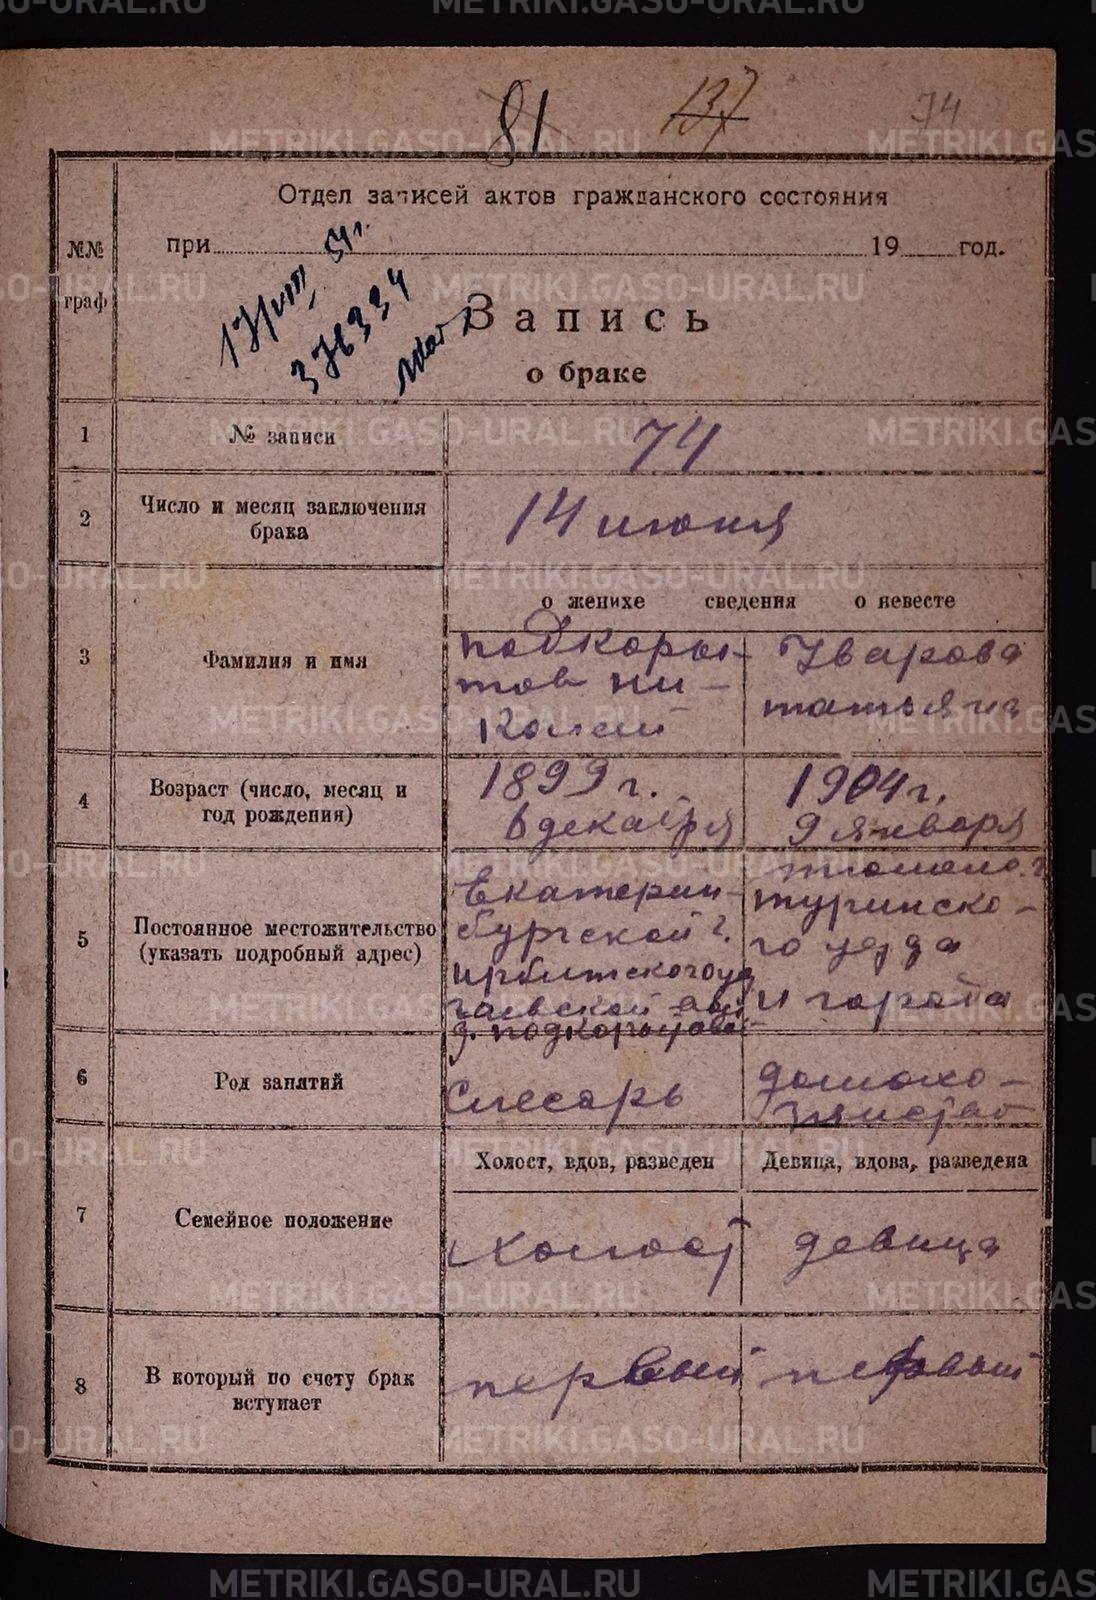 81 137 74
Отдел записей актов гражданского состояния
№№ при 19 год.
граф
17/VIII 54 г.
376334
Запись
о браке
1 № записи 74
2 Число и месяц заключения 14 июня
брака
о женихе сведения о невесте
3 Фамилия и имя
Подкоры- Уварова
тов Ни- Татьяна
колай
4 Возраст (число, месяц и 1899 г. 1904 г.
год рождения) 6 декабря 9 января
5 Постоянное местожительство
(указать подробный адрес)
Екатерин- Тюмено. г
бургской г. Туринско-
Ирбитского уез го уезда
и города
д. Подкорытова
6 Род занятий Слесарь домохо-
зяйство
Холост, вдов, разведен Девица, вдова, разведена
7 Семейное положение холост девица
8 В который по счету брак первый первый
вступает
METRIKI.GASO-URAL.RU